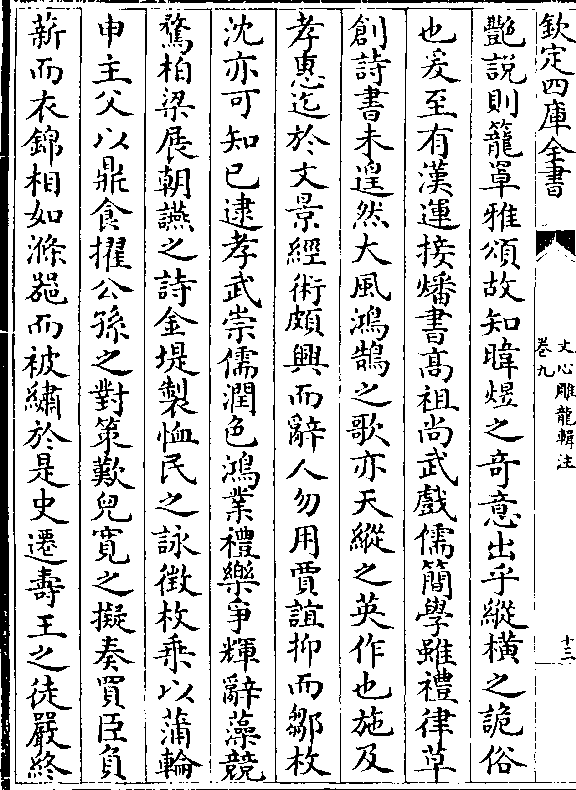 欽定四庫全書
文心雕龍輯注
卷九
十三
艷說則籠罩雅頌故知暐煜之奇意出乎縱橫之詭俗
也爰至有漢運接燔書高祖尚武戲儒簡學雖禮律草
創詩書未遑然大風鴻鵠之歌亦天縱之英作也施及
孝惠迄於文景經術頗興而辭人勿用賈誼抑而鄒枚
沈亦可知已逮孝武崇儒潤色鴻業禮樂爭輝辭藻競
騖柏梁展朝讌之詩金堤製恤民之詠徵枚乗以蒲輪
申主父以鼎食擢公孫之對策歎兒寛之擬奏買臣負
薪而衣錦相如滌器而被繡於是史遷壽王之徒嚴終